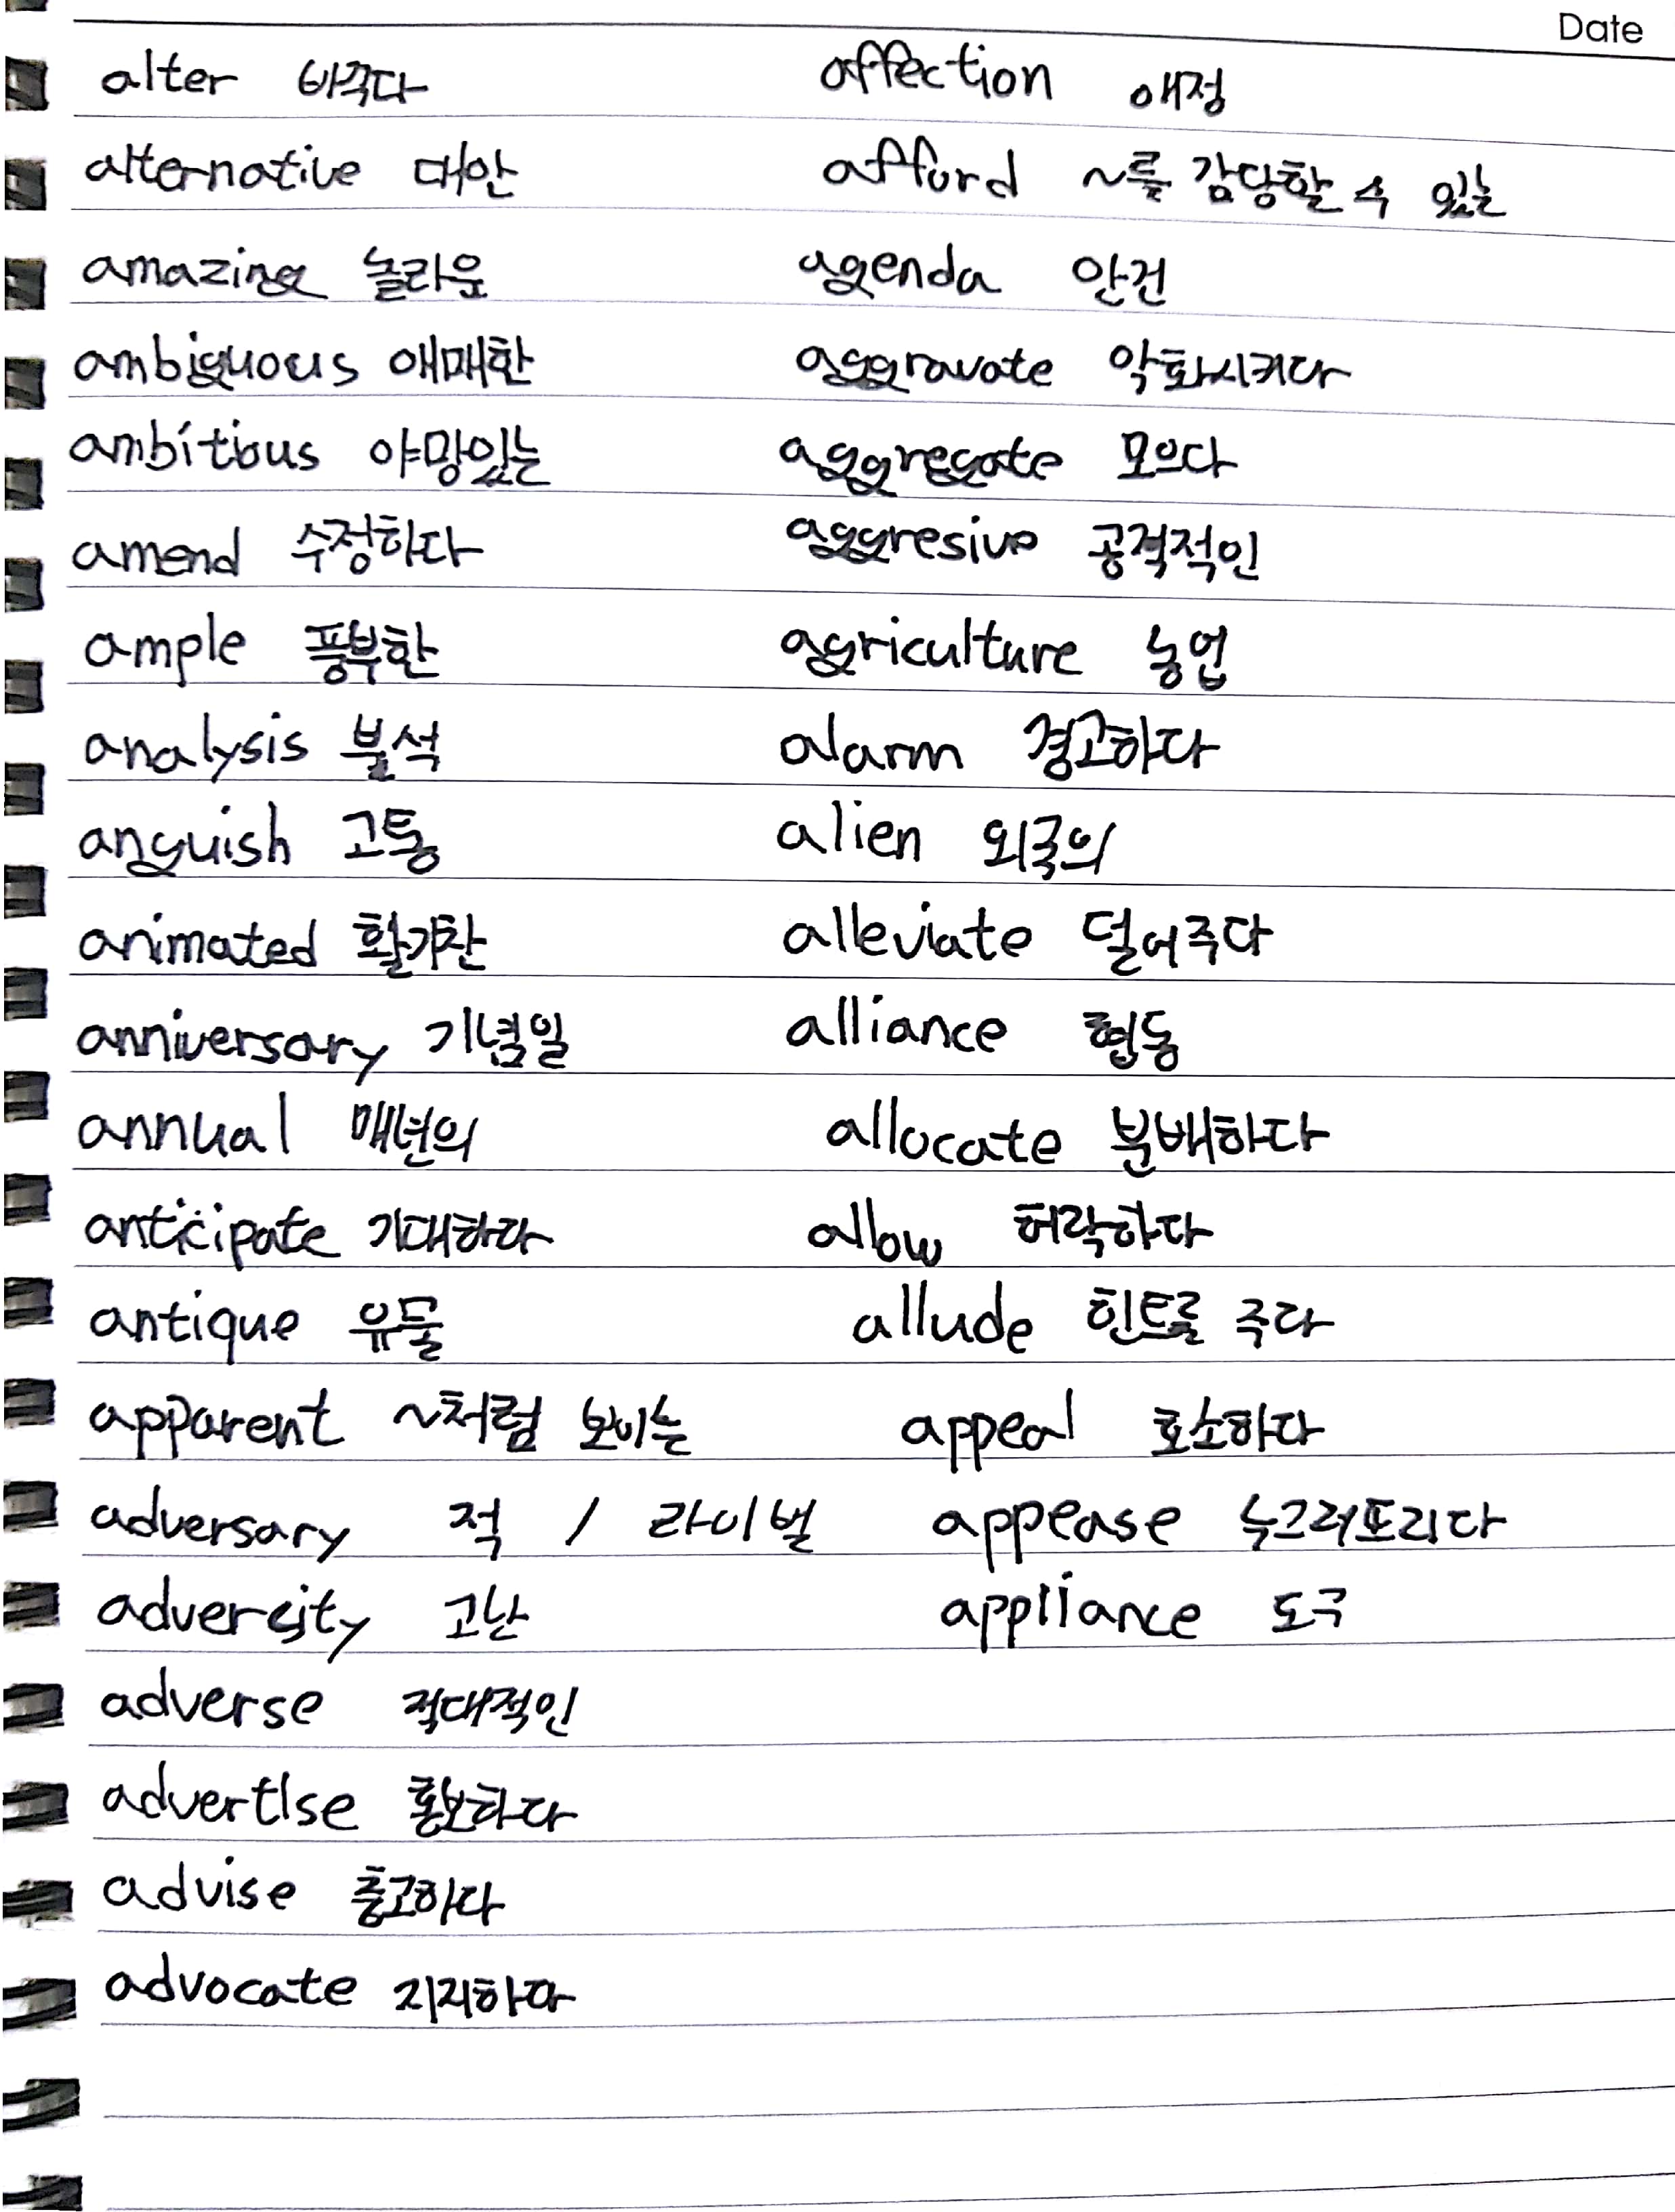 Date
alter 바꾸다
alternative 대안
amazing 놀라운
ambiguous 애매한
ambitious 야망있는
amend 수정하다
ample 풍부한
analysis 분석
anguish 고통
animated 활기찬
anniversary 기념일
annual 매년의
anticipate 기대하다
antique 유물
apparent ~처럼 보이는
adversary 적 / 라이벌
advercity 고난
adverse 적대적인
advertise 홍보하다
advise 충고하다
advocate 지지하다
affection 애정
afford ~를 감당할 수 있는
agenda 안건
aggravate 악화시키다
aggregate 모으다
aggresive 공격적인
agriculture 농업
alarm 경고하다
alien 외국의
alleviate 덜어주다
alliance 협동
allocate 분배하다
allow 허락하다
allude 힌트를 주다
appeal 호소하다
appease 누그러뜨리다
appliance 도구